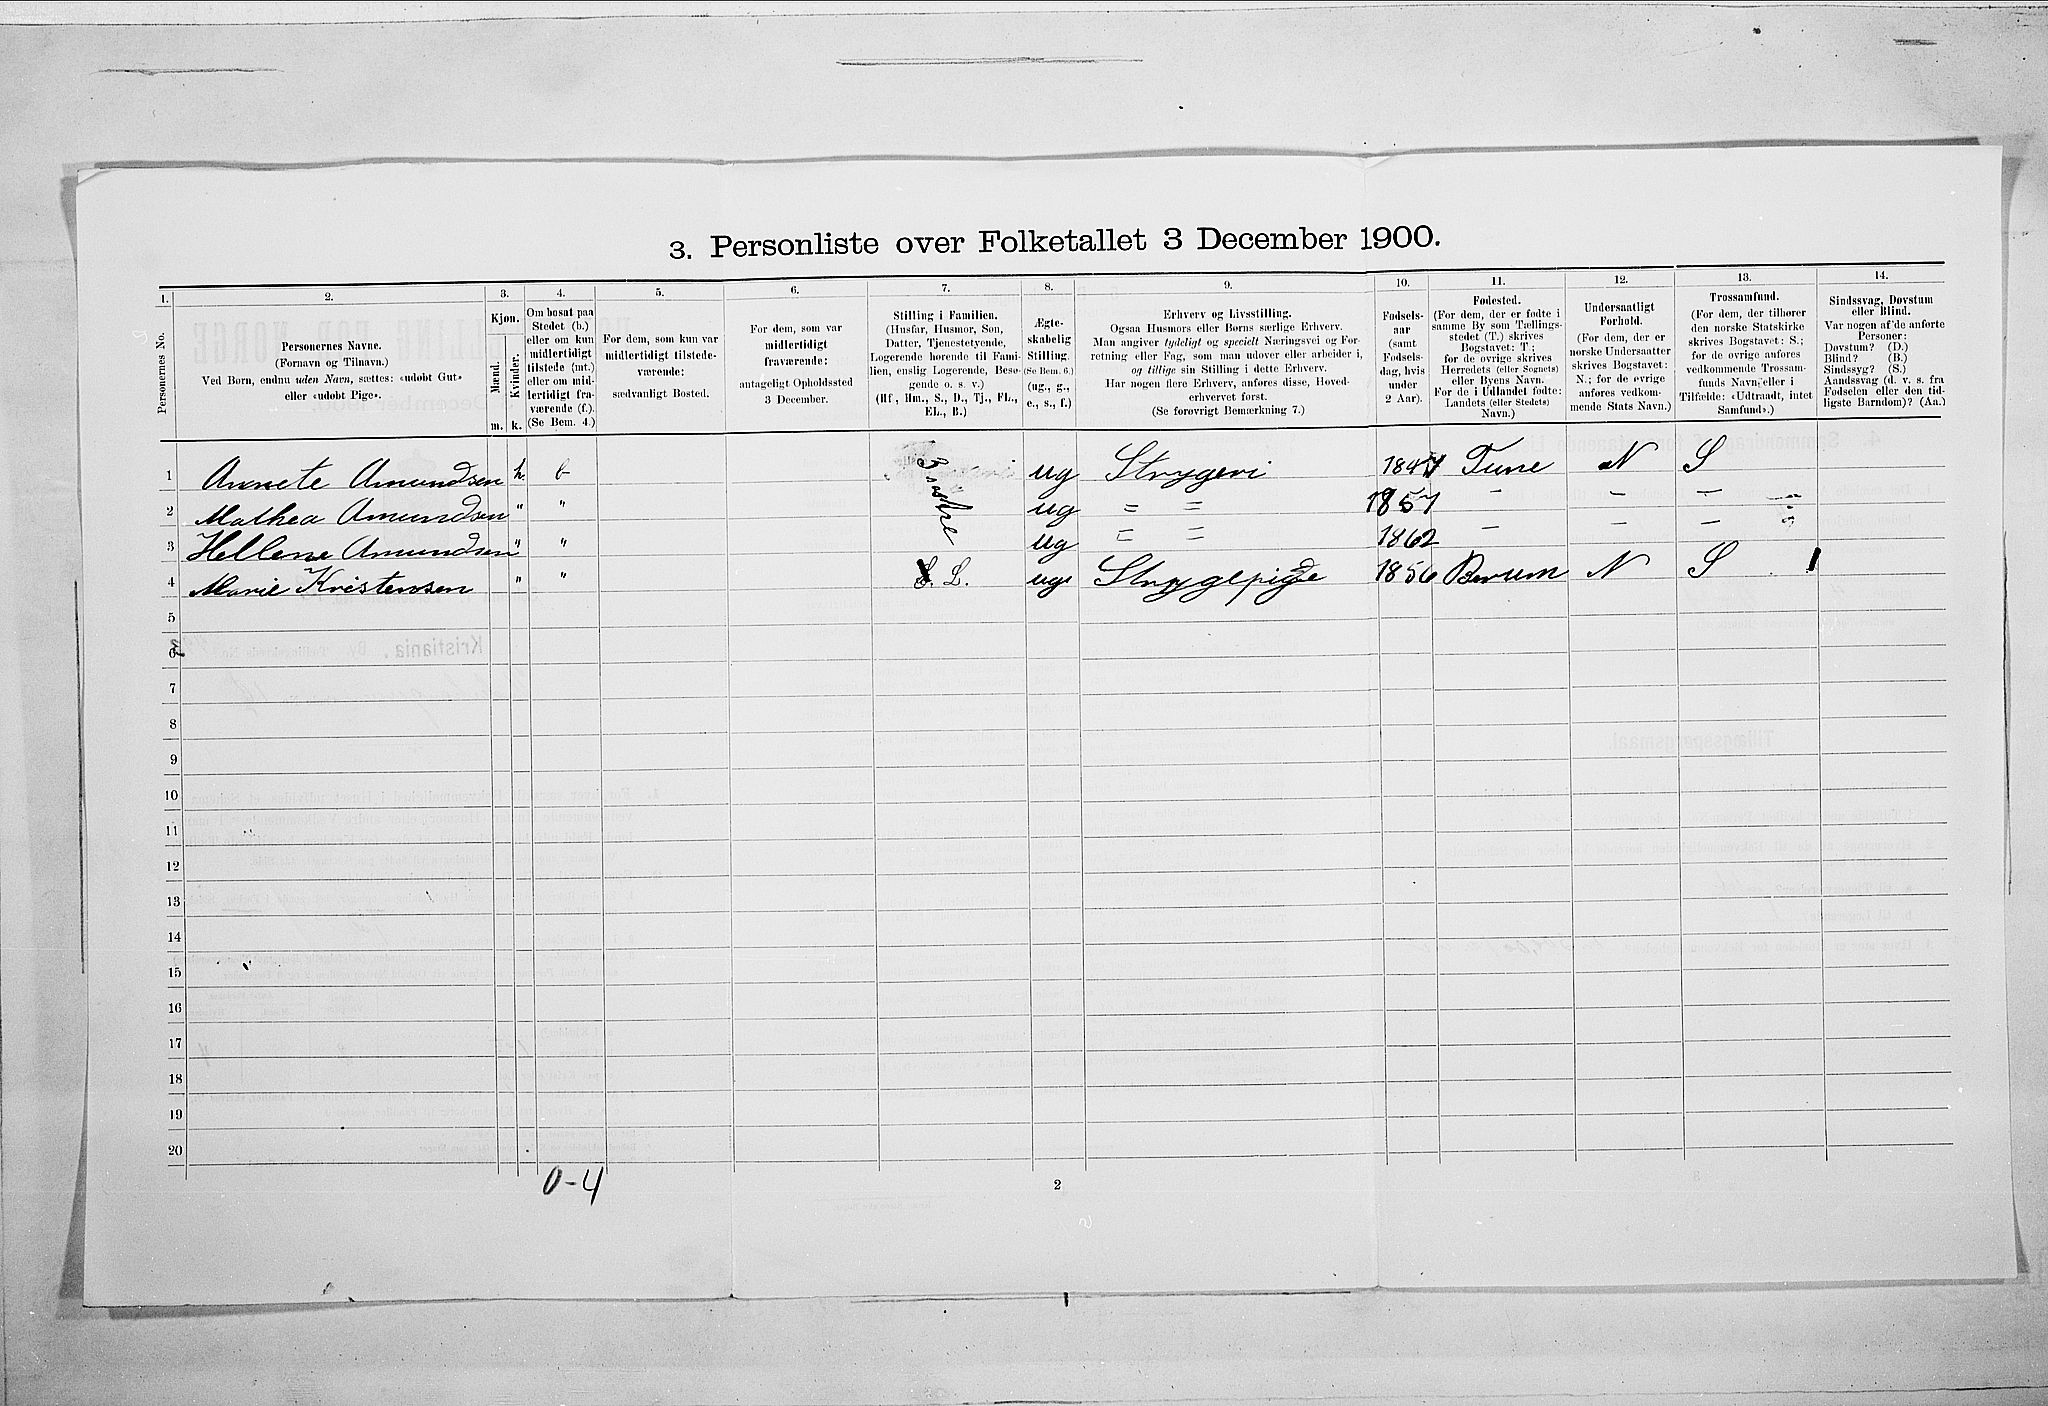 3. Personliste over Folketallet 3 December 1900.
1. 2. 3. 4. 5. 6. 7. 8. 9. 10. 11. 12. 13. 14.
Personernes No.
Personernes Navne.
(Fornavn og Tilnavn.)
Ved Børn, endnu uden Navn, sættes: «udøbt Gut»
eller «udøbt Pige».
Kjøn.
Mænd. Kvinder.
m. k.
Om bosat paa
Stedet (b.)
eller om kun
midlertidigt
tilstede (mt.)
eller om mid-
lertidigt fra-
værende (f.).
(Se Bem. 4.)
For dem, som kun var
midlertidigt tilstede-
værende:
sædvanligt Bosted.
For dem, som var
midlertidigt
fraværende:
antageligt Opholdssted
3 December.
Stilling i Familien.
(Husfar, Husmor, Søn,
Datter, Tjenestetyende,
Logerende hørende til Fami-
lien, enslig Logerende, Besø-
gende o. s. v.)
(Hf., Hm., S., D., Tj., FL.,
EL., B.)
Ægte-
skabelig
Stilling.
(Se Bem. 6.)
(ug., g.,
e., s., f.)
Erhverv og Livsstilling.
Ogsaa Husmors eller Børns særlige Erhverv.
Man angiver tydeligt og specielt Næringsvei og For-
retning eller Fag, som man udøver eller arbeider i,
og tillige sin Stilling i dette Erhverv.
Har nogen flere Erhverv, anføres disse, Hoved-
erhvervet først.
(Se forøvrigt Bemærkning 7.)
Fødsels-
aar
(samt
Fødsels-
dag, hvis
under
2 Aar).
Fødested.
(For dem, der er fødte i
samme By som Tællings-
stedet (T.) skrives
Bogstavet: T;
for de øvrige skrives
Herredets (eller Sognets)
eller Byens Navn.
For de i Udlandet fødte:
Landets (eller Stedets)
Navn.)
Undersaatligt
Forhold.
(For dem, der er
norske Undersaatter
skrives Bogstavet:
N.; for de øvrige
anføres vedkom-
mende Stats Navn.)
Trossamfund.
(For dem, der tilhører
den norske Statskirke
skrives Bogstavet: S.;
for de øvrige anføres
vedkommende Trossam-
funds Navn, eller i
Tilfælde: «Udtraadt, intet
Samfund».)
Sindssvag, Døvstum
eller Blind.
Var nogen af de anførte
Personer:
Døvstum? (D.)
Blind? (B.)
Sindssyg? (S.)
Aandssvag (d. v. s. fra
Fødselen eller den tid-
ligste Barndom)? (Aa.)
1 Annete Amundsen k. b ug Strygeri 1847 Tune N S
3 søstre
2 Mathea Amundsen " " ug = = 1857 - - -
3 Hellene Amundsen " " ug = = 1862 - - -
4 Marie Kristensen " " E. L. ug Strygepige 1856 Berum N S
5
6
7
8
9
10
11
12
13
14
15
16
17
18
19
20
0-4
2